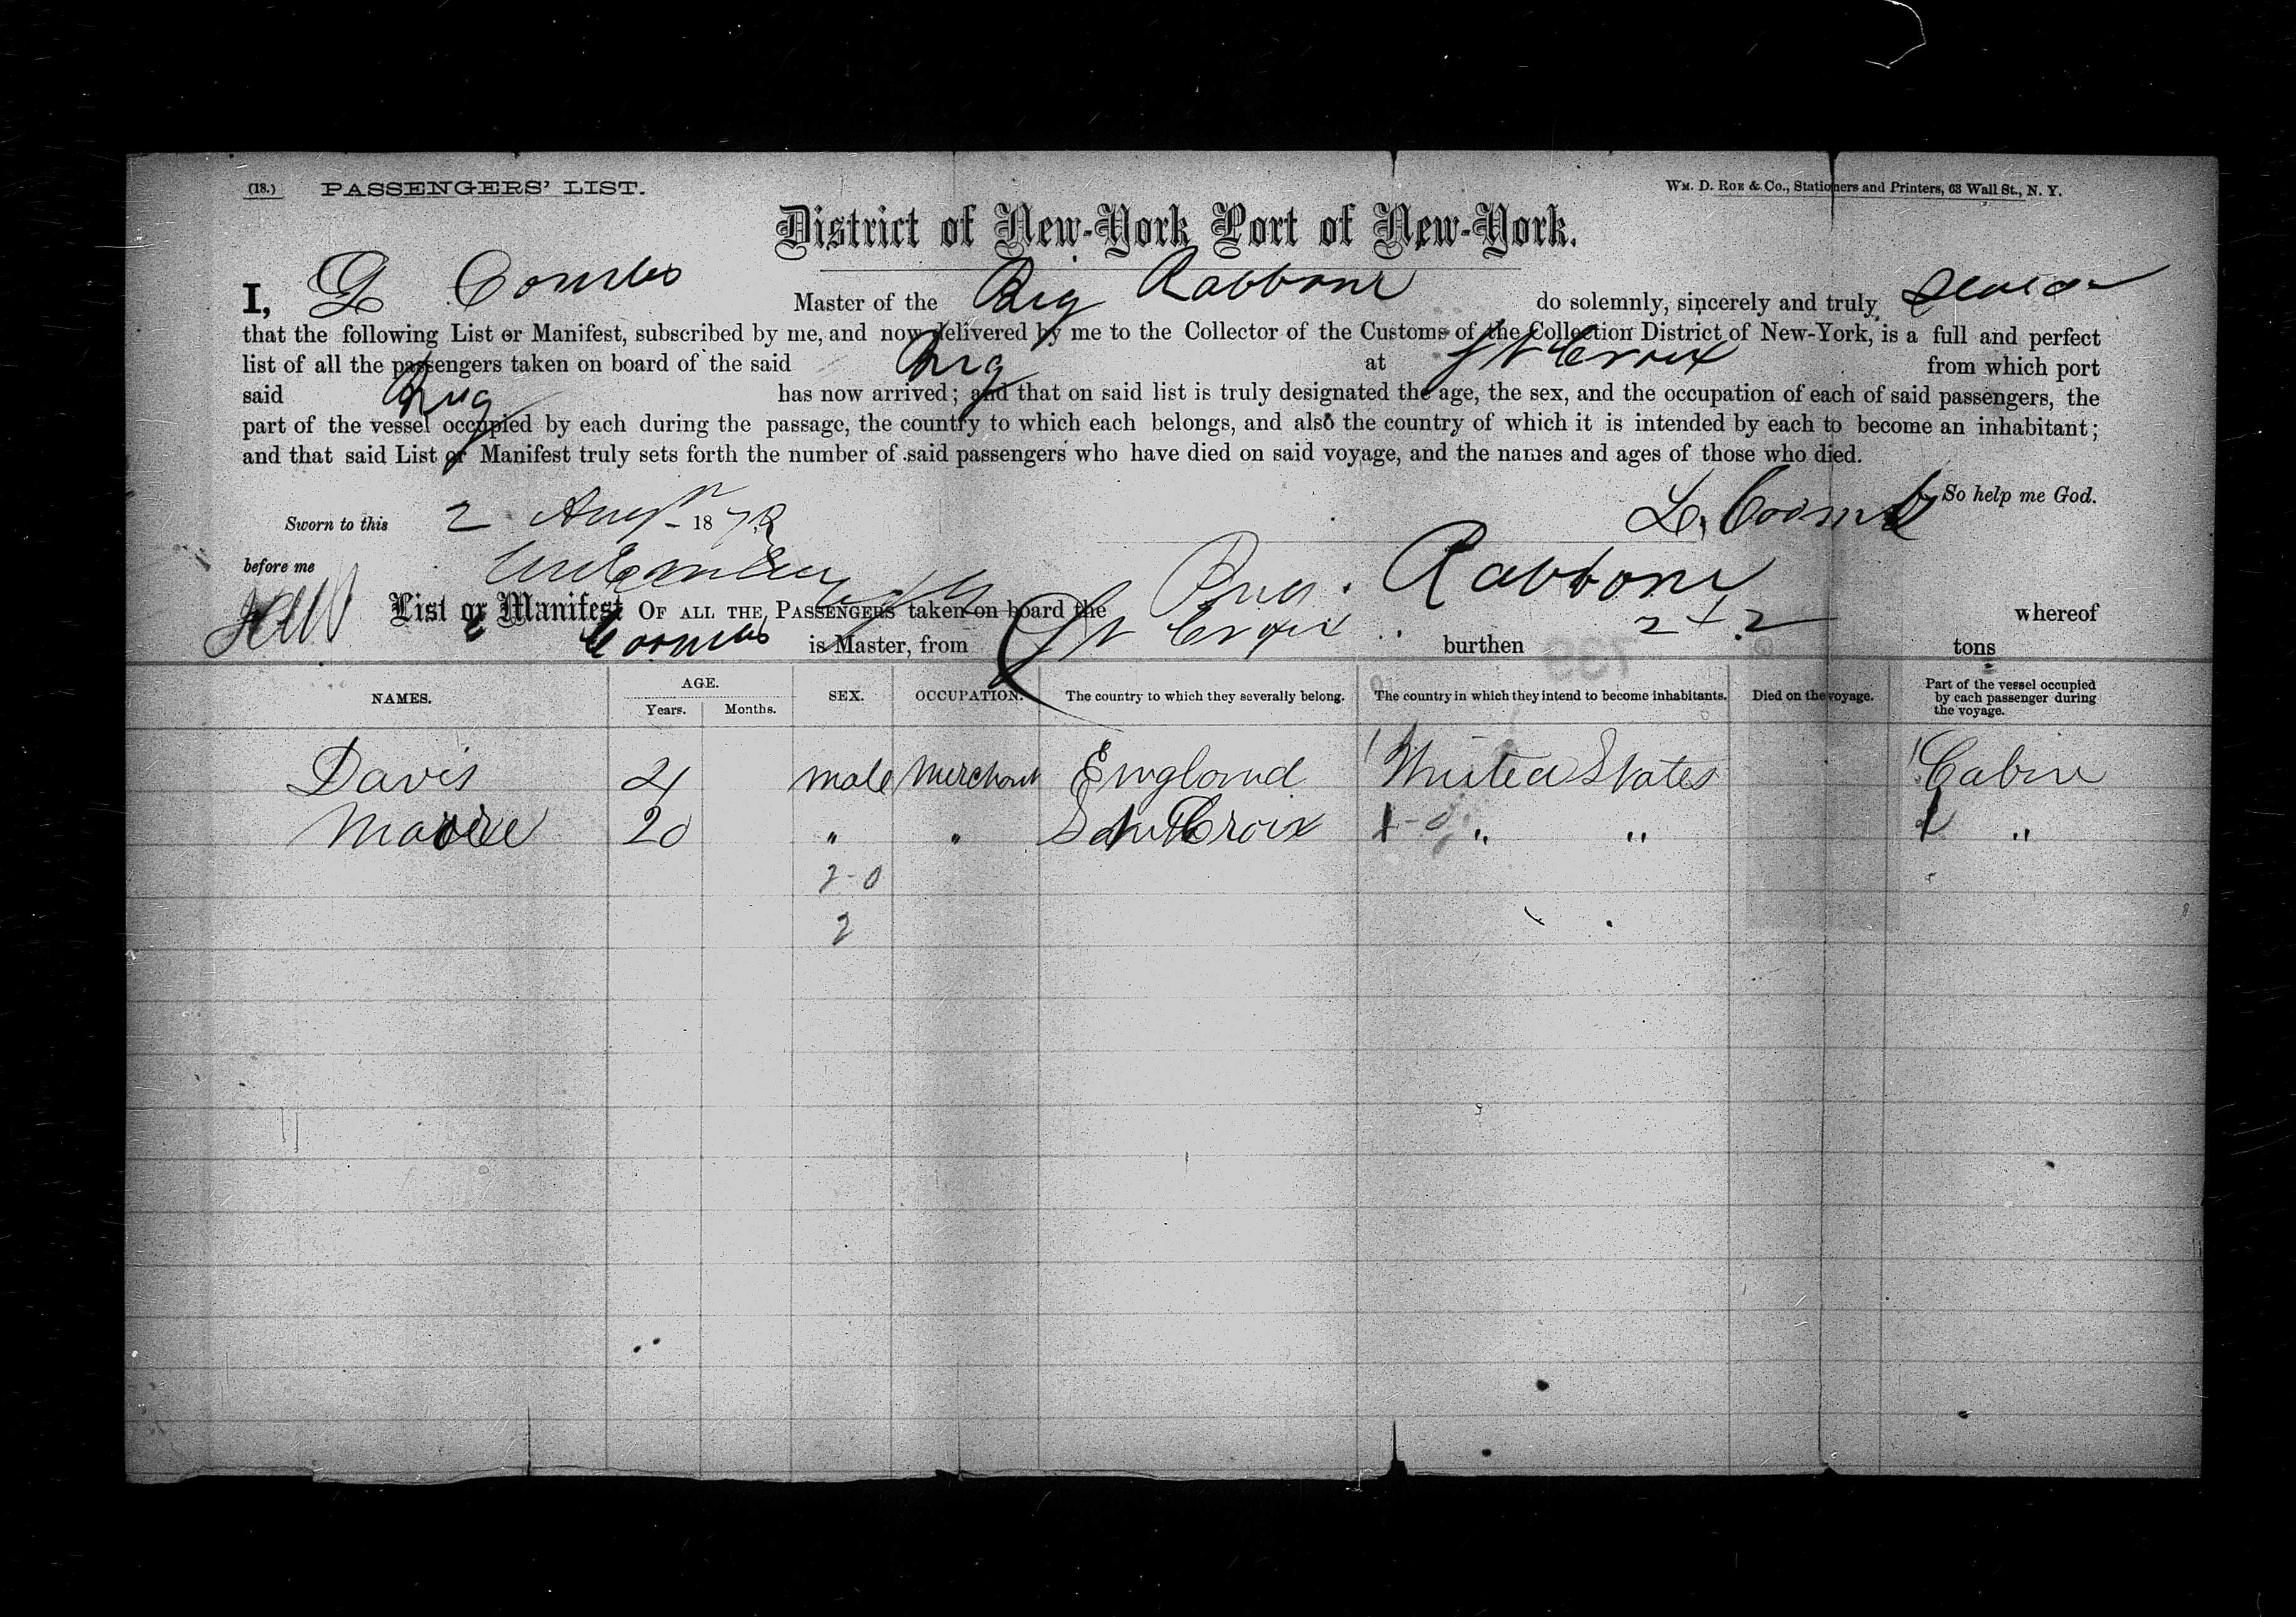 (18.) PASSENGERS' LIST. WM. D. ROE & Co., Stationers and Printers, 63 Wall St., N. Y.
District of New-York Port of New-York.
I, Coombs Master of the Brig Rabboni do solemnly, sincerely and truly swear
that the following List or Manifest, subscribed by me, and now delivered by me to the Collector of the Customs of the Collection District of New-York, is a full and perfect
list of all the passengers taken on board of the said Brig at St Croix from which port
said Brig has now arrived; and that on said list is truly designated the age, the sex, and the occupation of each of said passengers, the
part of the vessel occupied by each during the passage, the country to which each belongs, and also the country of which it is intended by each to become an inhabitant;
and that said List or Manifest truly sets forth the number of said passengers who have died on said voyage, and the names and ages of those who died.
So help me God.
Sworn to this 2 Augt 1872 Coombs
before me
List or Manifest OF ALL THE PASSENGERS taken on board the Brig Rabboni whereof
Coombs is Master, from St Croix burthen tons
NAMES. AGE. SEX. OCCUPATION. The country to which they severally belong. The country in which they intend to become inhabitants. Died on the voyage. Part of the vessel occupied by each passenger during the voyage.
Years. Months.
Davis 21 male Merchant England 1 United States 1 Cabin
Moore 20 " " Saint Croix 1-0 " " 1 "
2-0
2